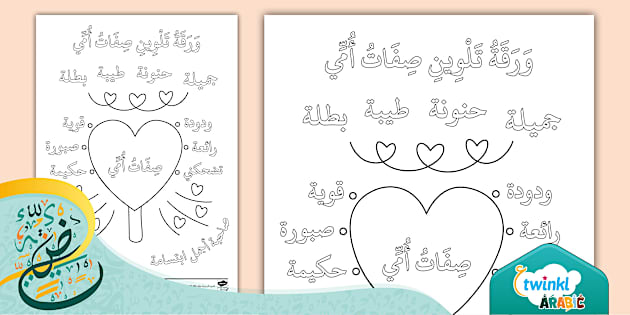 وَرَقَةُ تَلْوِينِ صِفَاتُ أُمِّي
جميلة حنونة طيبة بطلة
ودودة قوية
رائعة صبورة
تضحكني صِفَاتُ أُمِّي حكيمة
صاحبة أجمل ابتسامة
وَرَقَةُ تَلْوِينِ صِفَاتُ أُمِّي
جميلة حنونة طيبة بطلة
ودودة قوية
رائعة صبورة
صِفَاتُ أُمِّي حكيمة
twinkl
ARABIC